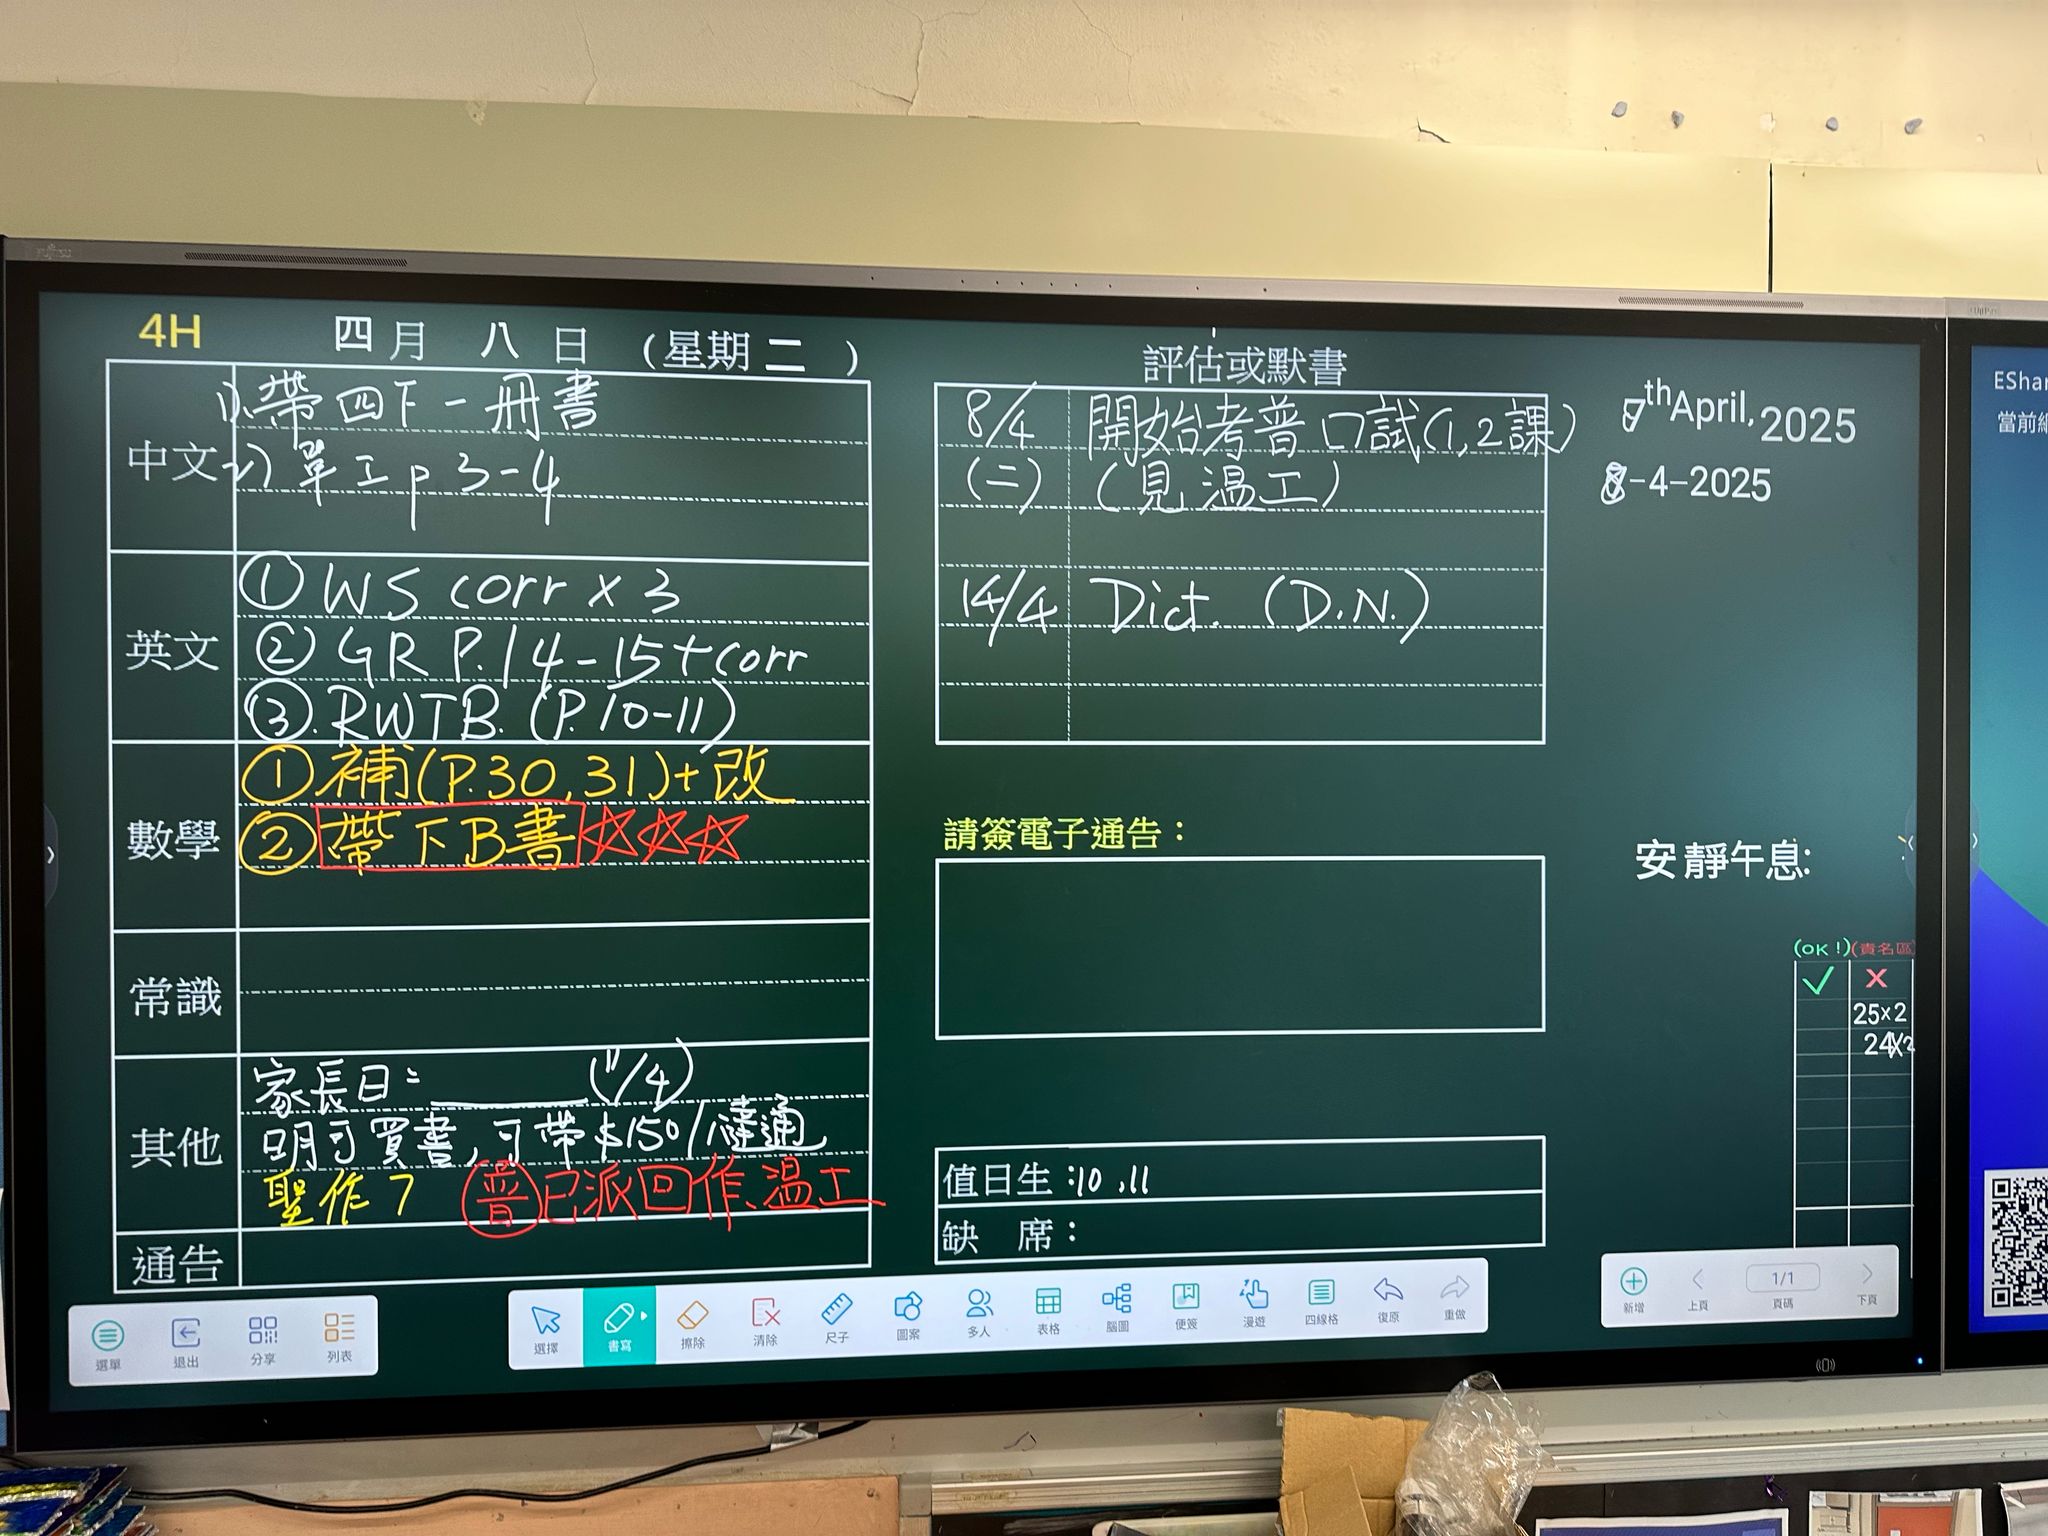 4H 四月 八日 (星期二)
中文
1).帶四下一冊書
2) 單工p 3-4
英文
① WS corr x 3
② GR P.14-15+corr
③. RWTB. (P.10-11)
數學
① 補(P.30,31)+改
② 帶下B書☆☆☆
常識
其他
家長日:______(11/4)
明可買書,可帶$150/
聖作7 普已派回作、温工
通告
評估或默書
8/4 開始考普口試(1,2課)
(二) (見温工)
14/4 Dict. (D.N.)
請簽電子通告:
值日生:10 ,11
缺 席:
8th April, 2025
8-4-2025
安靜午息:
(OK!) (責名區
✓ X
25×2
24×2
選單 退出 分享 列表
選擇 書寫 擦除 清除 尺子 圖案 多人 表格 腦圖 便簽 漫遊 四線格 復原 重做
新增 上頁 1/1 頁碼 下頁
EShar
當前